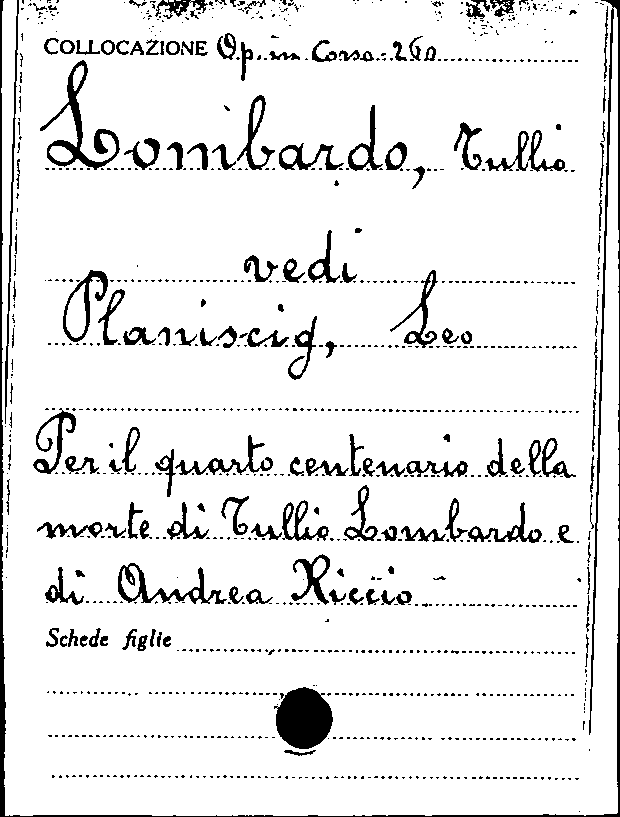 COLLOCAZIONE Op. in Corso-260
Lombardo, Tullio
vedi
Planiscig, Leo
Per il quarto centenario della
morte di Tullio Lombardo e
di Andrea Riccio -
Schede figlie